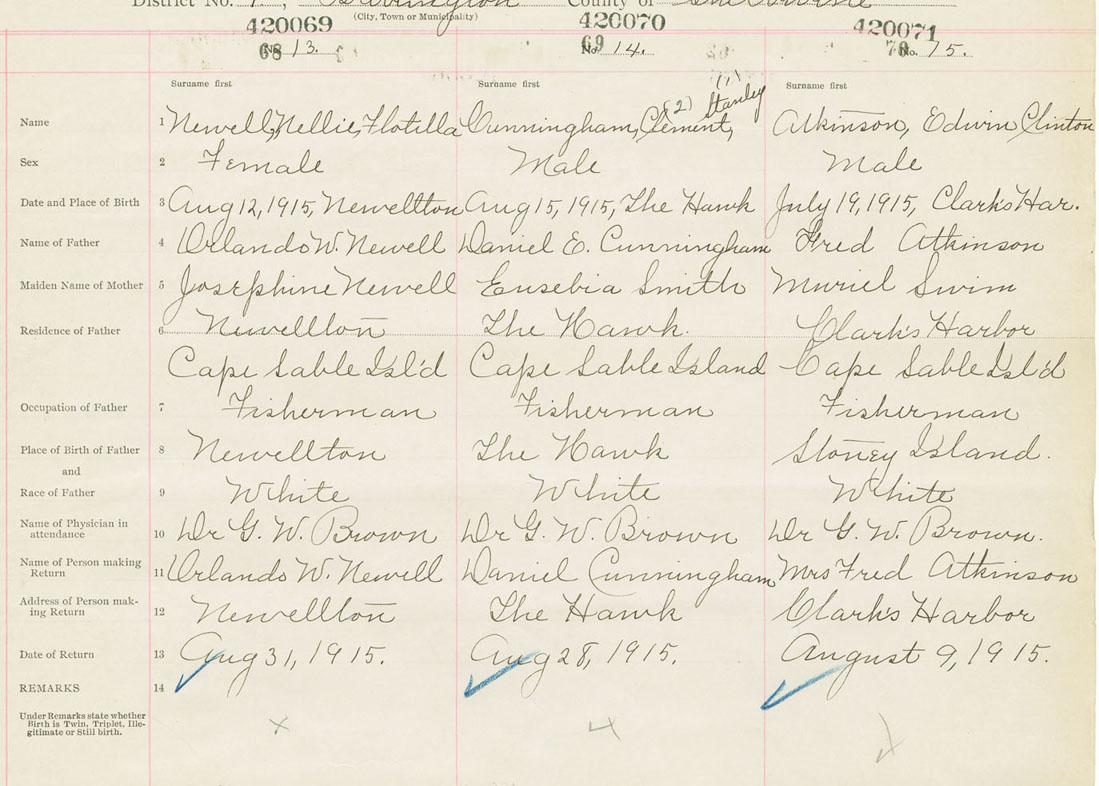 District No. 1, Barrington County of Shelburne
(City, Town or Municipality)
420069 420070 420071
68 No. 13. 69 No. 14. 70 No. 15.
Surname first Surname first Surname first
(1)
(2) Stanley
Name 1 Newell, Nellie, Flotilla Cunningham, Clement, Atkinson, Edwin Clinton
Sex 2 Female Male Male
Date and Place of Birth 3 Aug 12, 1915, Newellton Aug 15, 1915, The Hawk July 19, 1915, Clark's Har.
Name of Father 4 Orlando W. Newell Daniel E. Cunningham Fred Atkinson
Maiden Name of Mother 5 Josephine Newell Eusebia Smith Muriel Swim
Residence of Father 6 Newellton The Hawk. Clark's Harbor
Cape Sable Isl'd Cape Sable Island Cape Sable Isl'd
Occupation of Father 7 Fisherman Fisherman Fisherman
Place of Birth of Father 8 Newellton The Hawk Stoney Island.
and
Race of Father 9 White White White
Name of Physician in
attendance 10 Dr G. W. Brown Dr G. W. Brown Dr G. W. Brown.
Name of Person making
Return 11 Orlando W. Newell Daniel Cunningham Mrs Fred Atkinson
Address of Person mak-
ing Return 12 Newellton The Hawk Clark's Harbor
Date of Return 13 Aug 31, 1915. Aug 28, 1915. August 9, 1915.
REMARKS 14
Under Remarks state whether
Birth is Twin, Triplet, Ille-
gitimate or Still birth.